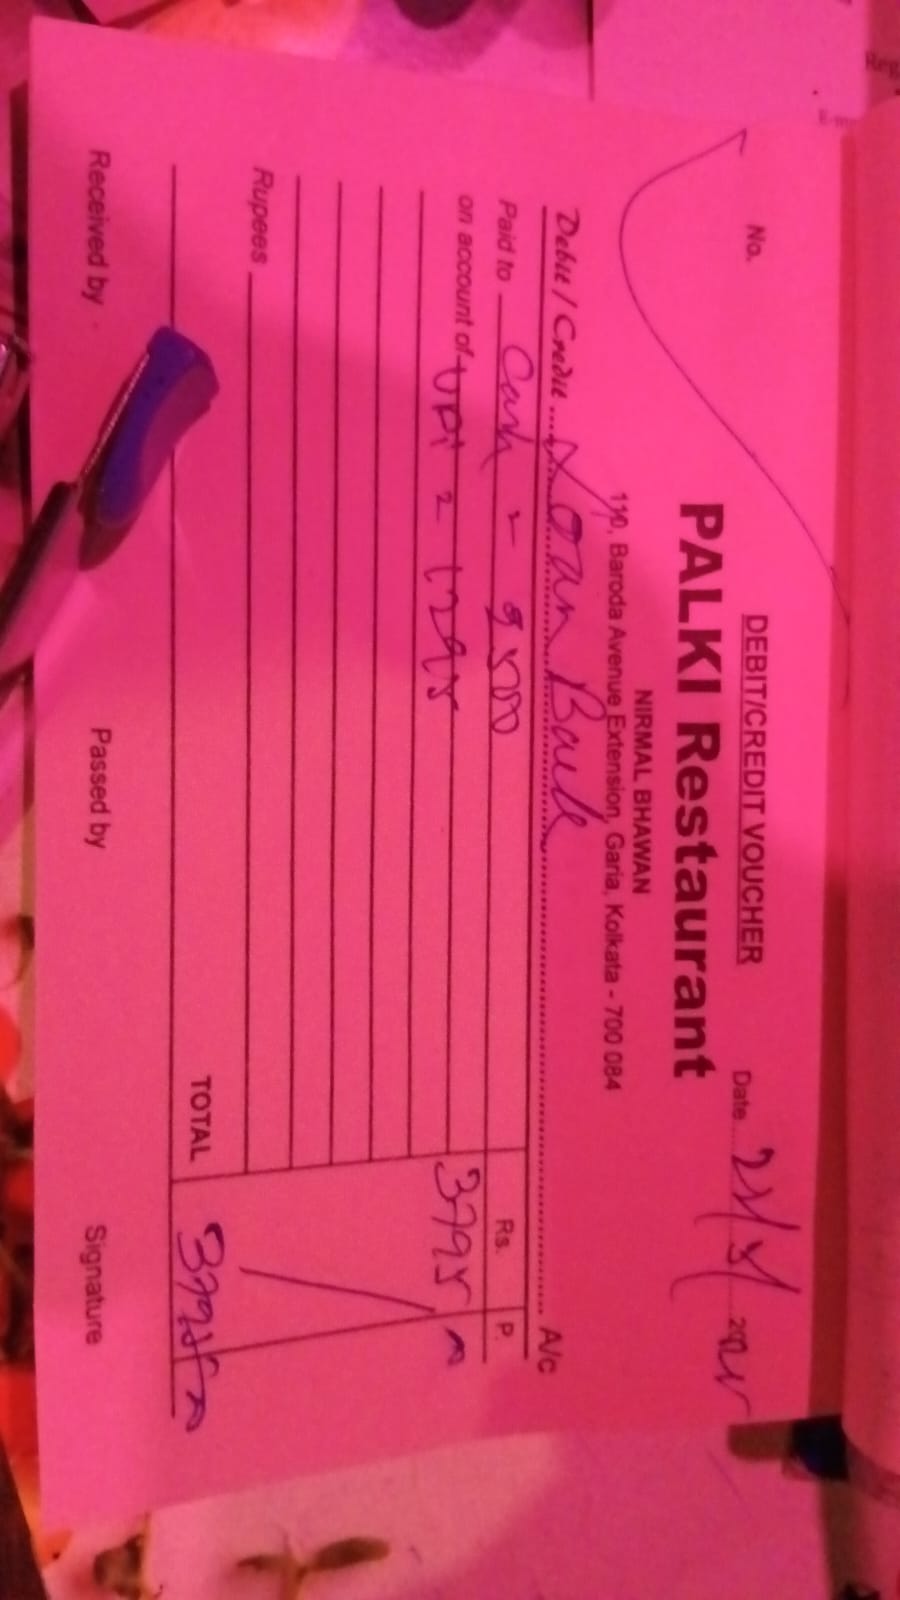 DEBIT/CREDIT VOUCHER
No.
Date 21/5/
PALKI Restaurant
NIRMAL BHAWAN
110, Baroda Avenue Extension, Garia, Kolkata - 700 084
Debit / Credit Loan Back A/c
Rs. P.
Paid to Cash = 2500
on account of UPI = 1295 3795
Rupees
TOTAL 3795
Received by Passed by Signature
Reg